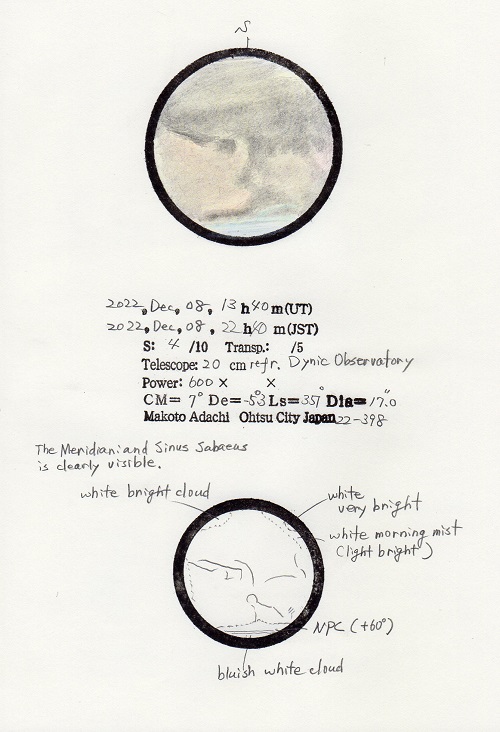 S
2022, Dec, 08, 13 h 40 m (UT)
2022, Dec, 08, 22 h 40 m (JST)
S: 4 /10 Transp.: /5
Telescope: 20 cm refr. Dynic Observatory
Power: 600 × ×
CM= 7° De= -5.3 Ls= 351° Dia= 17.0"
Makoto Adachi Ohtsu City Japan 22-398
The Meridiani and Sinus Sabaeus
is clearly visible.
white bright cloud
white
very bright
white morning mist
(light bright)
NPC (+60°)
bluish white cloud